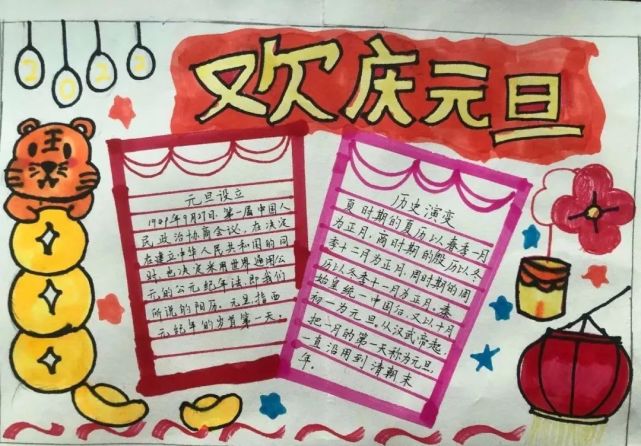 2022
欢庆元旦
王
元旦设立
1949年9月27日，第一届中国人
民政治协商会议，在决定
在建立中华人民共和国的同
时，也决定采用世界通用公
元的公元纪年法，即我们
所说的阳历。元旦指西
元纪年的岁首第一天。
历史演变
夏时期的夏历以春季一月
为正月，商时期的殷历以冬
季十二月为正月，周时期的周
历以冬季十一月为正月。秦
始皇统一中国后，又以十月
初一为元旦。从汉武帝起，
把一月的第一天称为元旦，
一直沿用到清朝末
年。